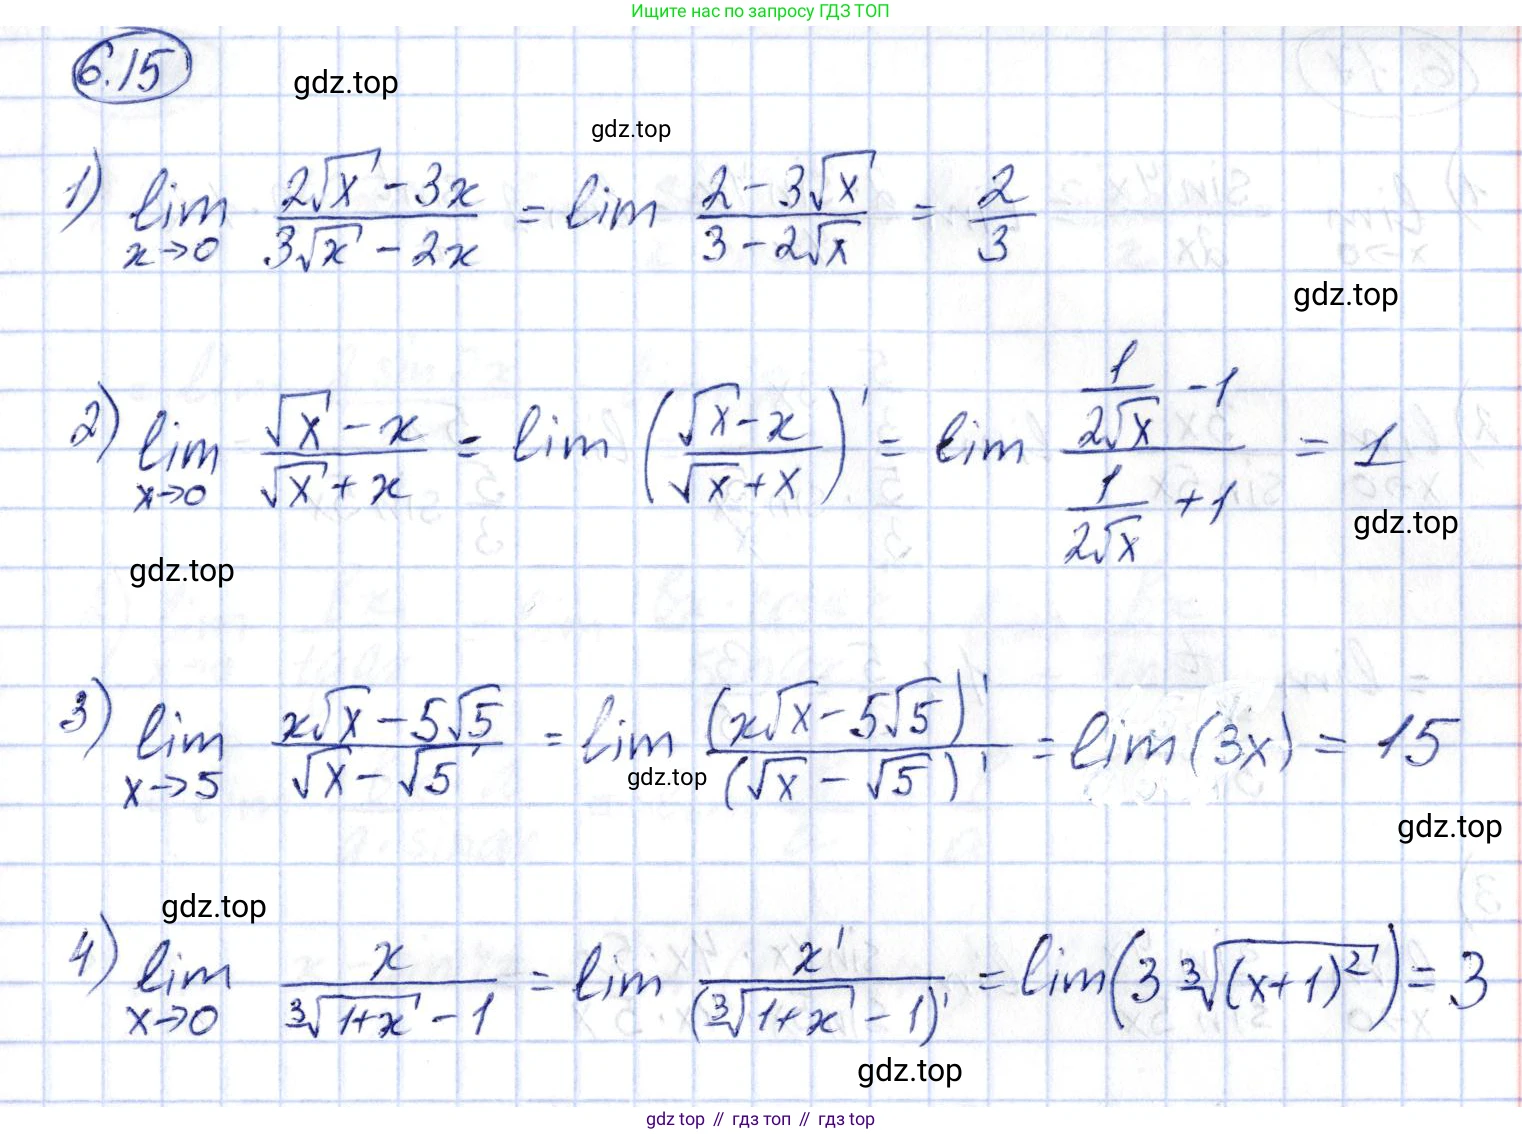 Ищите нас по запросу ГДЗ ТОП
6.15
gdz.top
gdz.top
1) lim x→0 (2√x - 3x)/(3√x - 2x) = lim (2 - 3√x)/(3 - 2√x) = 2/3
gdz.top
2) lim x→0 (√x - x)/(√x + x) = lim ((√x - x)/(√x + x))' = lim (1/(2√x) - 1)/(1/(2√x) + 1) = 1
gdz.top
gdz.top
3) lim x→5 (x√x - 5√5)/(√x - √5) = lim (x√x - 5√5)'/(√x - √5)' = lim (3x) = 15
gdz.top
gdz.top
gdz.top
4) lim x→0 x/(∛(1+x) - 1) = lim x'/(∛(1+x) - 1)' = lim (3 ∛((x+1)²)) = 3
gdz.top
gdz top // гдз топ // гдз top